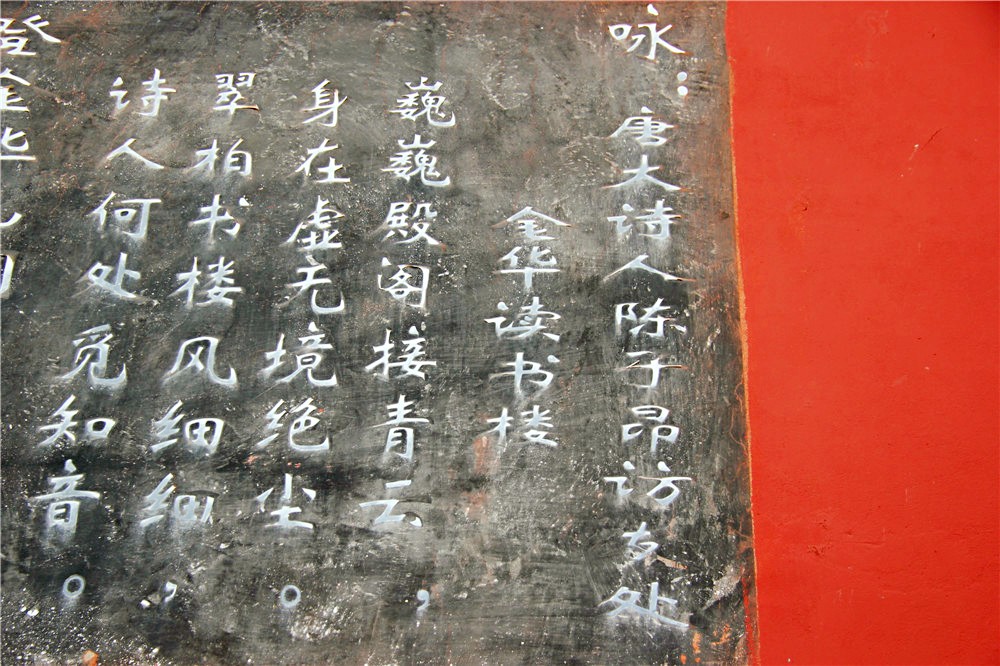 咏：唐大诗人陈子昂访友处
金华读书楼
巍巍殿阁接青云，
身在虚无境绝尘。
翠柏书楼风细细，
诗人何处觅知音。
登金华